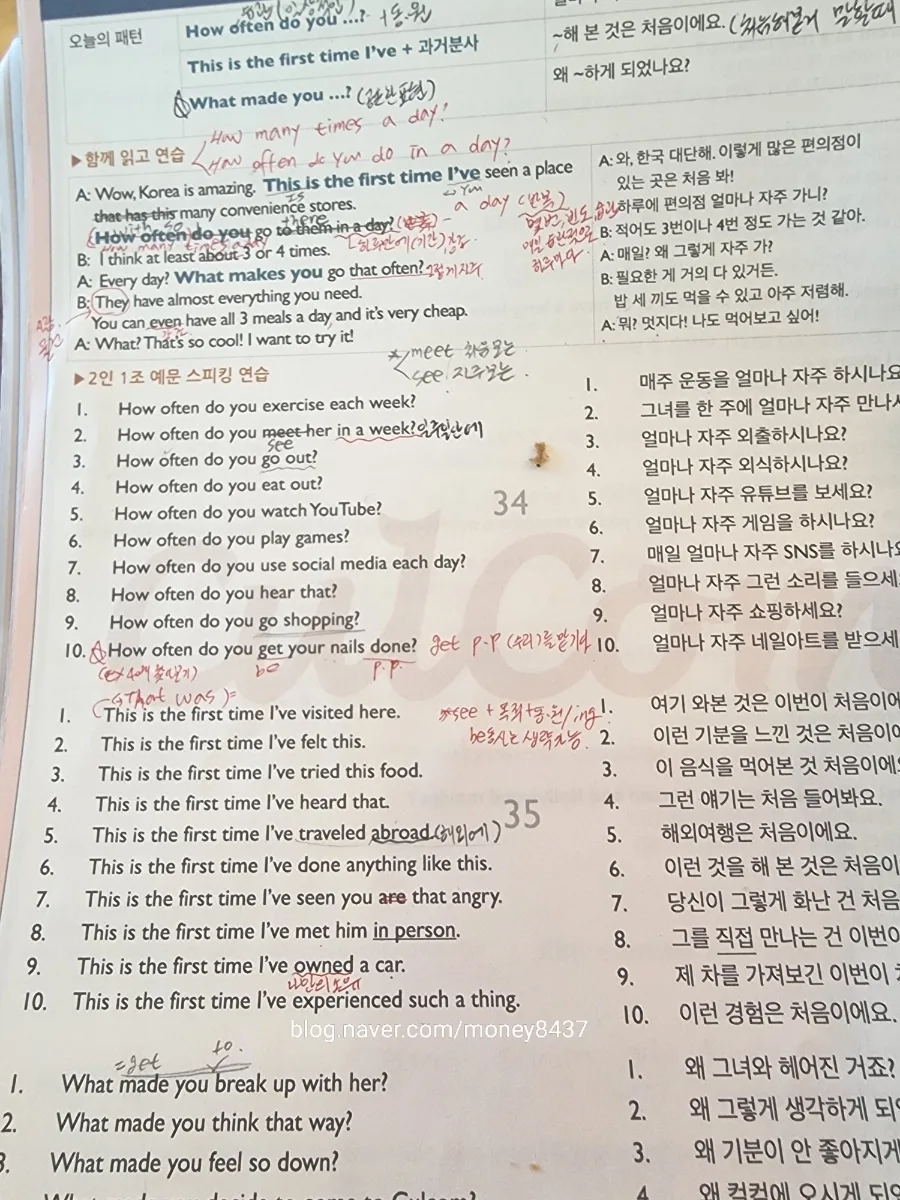 오늘의 패턴
How often do you ...? +동.원
~해 본 것은 처음이에요.
This is the first time I've + 과거분사
왜 ~하게 되었나요?
What made you ...?
How many times a day!
▶함께 읽고 연습
How often do you do in a day?
A: Wow, Korea is amazing. This is the first time I've seen a place
that has this many convenience stores.
is
with so
there
How often do you go to them in a day?
How many times a day
B: I think at least about 3 or 4 times.
A: Every day? What makes you go that often?
B: They have almost everything you need.
You can even have all 3 meals a day and it's very cheap.
A: What? That's so cool! I want to try it!
a day
A: 와, 한국 대단해. 이렇게 많은 편의점이
있는 곳은 처음 봐!
하루에 편의점 얼마나 자주 가니?
B: 적어도 3번이나 4번 정도 가는 것 같아.
A: 매일? 왜 그렇게 자주 가?
B: 필요한 게 거의 다 있거든.
밥 세 끼도 먹을 수 있고 아주 저렴해.
A: 뭐? 멋지다! 나도 먹어보고 싶어!
*meet 처음보는
see 자주보는
▶2인 1조 예문 스피킹 연습
1. How often do you exercise each week?
2. How often do you meet her in a week? 일주일안에
see
3. How often do you go out?
4. How often do you eat out?
5. How often do you watch YouTube?
34
6. How often do you play games?
7. How often do you use social media each day?
8. How often do you hear that?
9. How often do you go shopping?
10. How often do you get your nails done? get p.p
be
p.p.
1. 매주 운동을 얼마나 자주 하시나요
2. 그녀를 한 주에 얼마나 자주 만나시
3. 얼마나 자주 외출하시나요?
4. 얼마나 자주 외식하시나요?
5. 얼마나 자주 유튜브를 보세요?
6. 얼마나 자주 게임을 하시나요?
7. 매일 얼마나 자주 SNS를 하시나요
8. 얼마나 자주 그런 소리를 들으세
9. 얼마나 자주 쇼핑하세요?
10. 얼마나 자주 네일아트를 받으세
That was
1. This is the first time I've visited here.
2. This is the first time I've felt this.
3. This is the first time I've tried this food.
4. This is the first time I've heard that.
35
5. This is the first time I've traveled abroad. (해외에)
6. This is the first time I've done anything like this.
7. This is the first time I've seen you are that angry.
8. This is the first time I've met him in person.
9. This is the first time I've owned a car.
10. This is the first time I've experienced such a thing.
*see + 목적+동.원/ing
be동사는 생략가능
1. 여기 와본 것은 이번이 처음이에
2. 이런 기분을 느낀 것은 처음이에
3. 이 음식을 먹어본 것 처음이에요
4. 그런 얘기는 처음 들어봐요.
5. 해외여행은 처음이에요.
6. 이런 것을 해 본 것은 처음이
7. 당신이 그렇게 화난 건 처음
8. 그를 직접 만나는 건 이번이
9. 제 차를 가져보긴 이번이
10. 이런 경험은 처음이에요.
blog.naver.com/money8437
=get
to.
1. What made you break up with her?
2. What made you think that way?
3. What made you feel so down?
1. 왜 그녀와 헤어진 거죠?
2. 왜 그렇게 생각하게 되
3. 왜 기분이 안 좋아지게